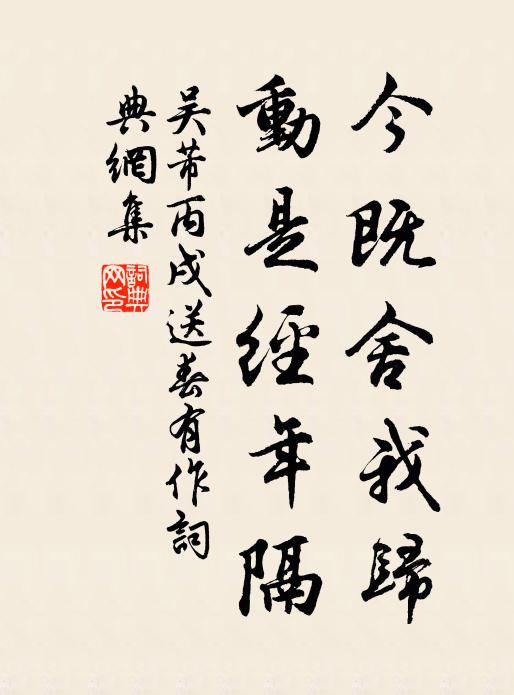 今既舍我歸
動是經年隔
吴芾丙戌送春有作詞
典網集
詞典網印